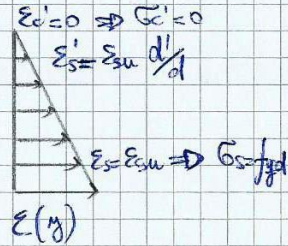 εc'=0 ⇒ σc'=0
εs'=εsu d'/d
εs=εsu ⇒ σs=fyd
ε(y)